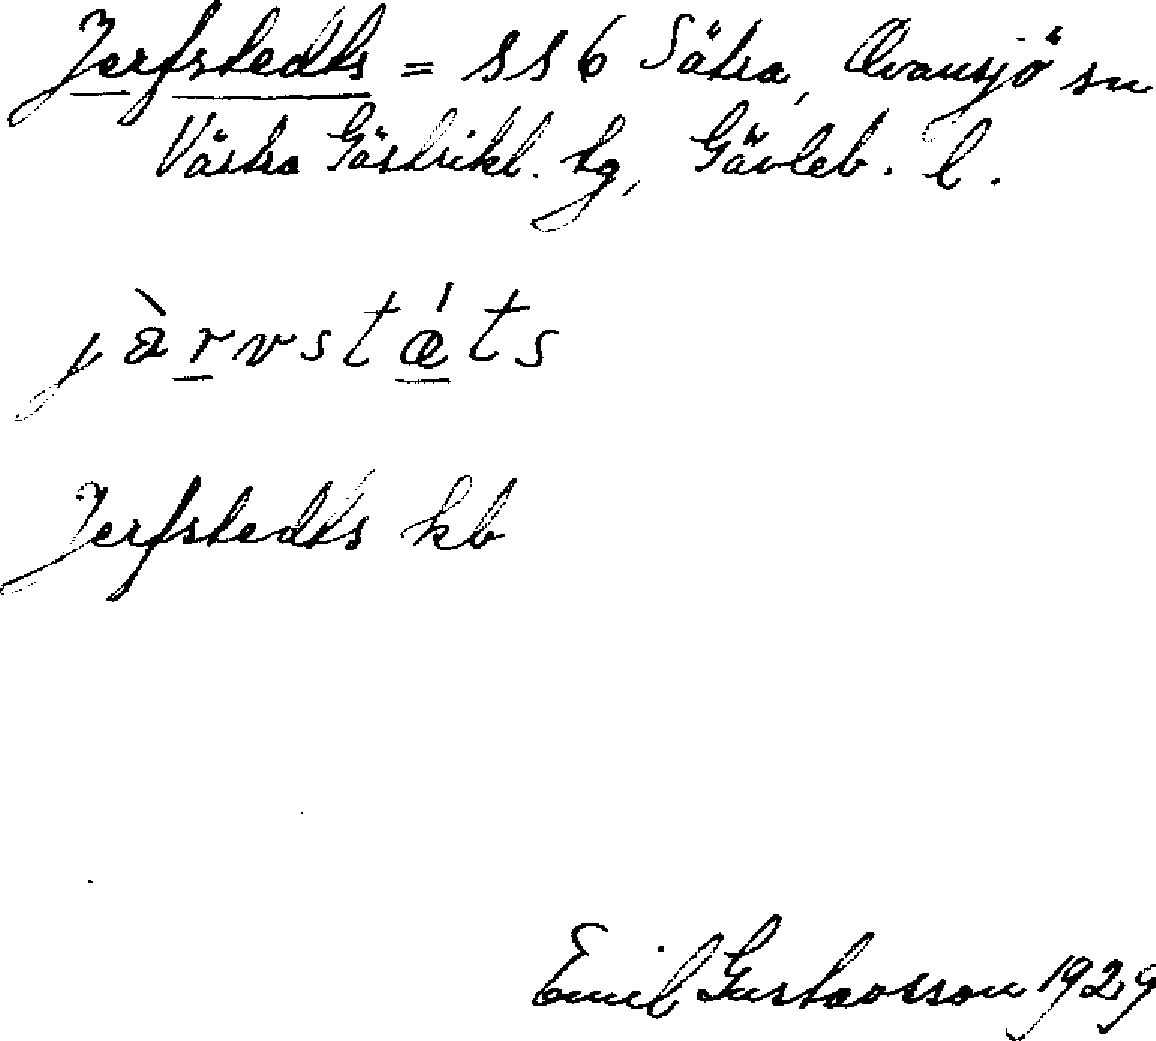 Jerfstedts = SS 6 Sätra, Ovansjö sn
Västra Gästrikl. tg, Gävleb. l.
jàrvstǽts
Jerfstedts kb
Emil Gustavsson 1929